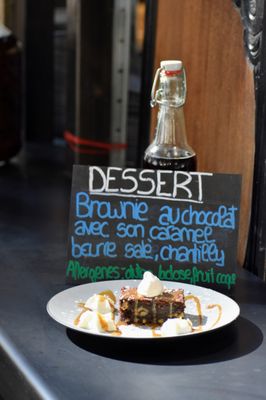 DESSERT
Brownie au chocolat
avec son caramel
beurre salé, chantilly
Allergenes: gluten, lactose, fruit coque